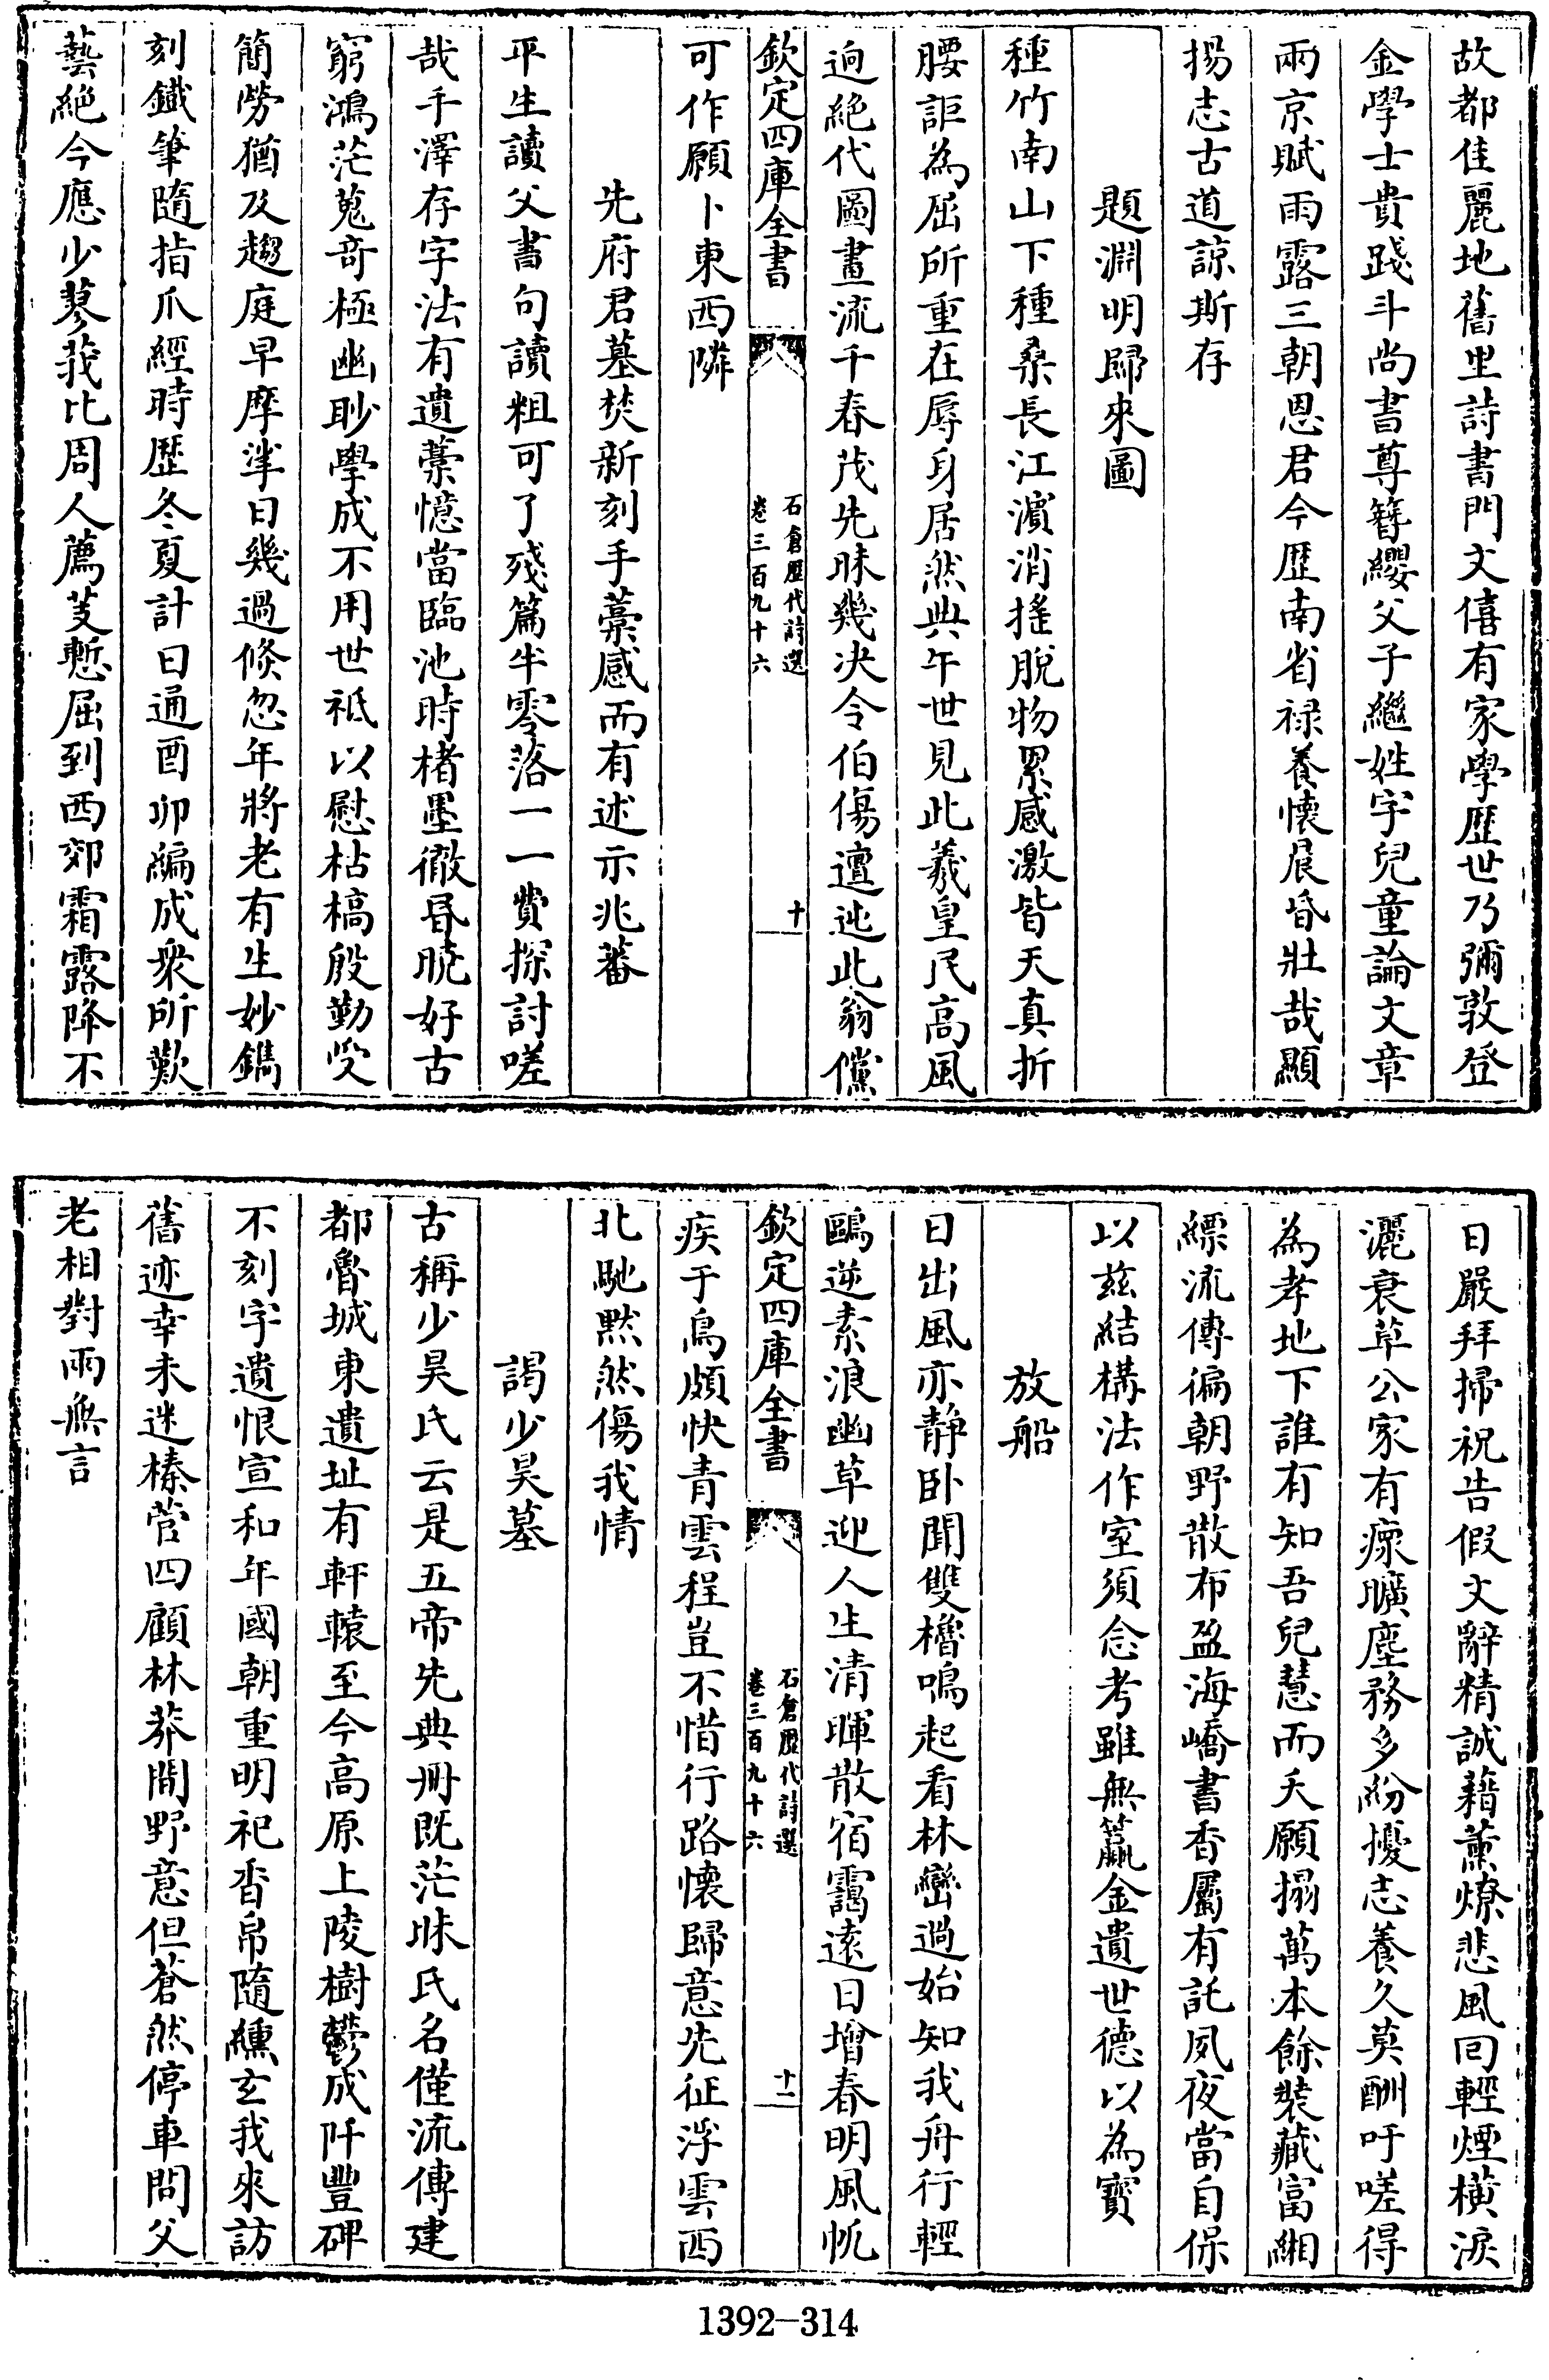 故都佳麗地舊里詩書門文僖有家學歴世乃彌敦登
金學士貴踐斗尚書尊簪纓父子繼姓字兒童論文章
兩京賦雨露三朝恩君今歴南省禄養懷晨昏壯哉顯
揚志古道諒斯存
題淵明歸來圖
種竹南山下種桑長江濱消摇脫物累感激皆天真折
腰詎為屈所重在辱身居然典午世見此羲皇民高風
逈絶代圖畫流千春茂先昧幾决令伯傷邅迍此翁儻
欽定四庫全書
石倉歴代詩選
卷三百九十六
十
可作願卜東西隣
先府君墓焚新刻手藁感而有述示兆蕃
平生讀父書句讀粗可了殘篇半零落一一費探討嗟
哉手澤存字法有遺藁憶當臨池時楮墨徹昏曉好古
窮鴻茫蒐奇極幽眇學成不用世祗以慰枯槁殷勤受
簡勞猶及趨庭早摩挲日幾過倐忽年將老有生妙鐫
刻鐵筆隨指爪經時歴冬夏計日通酉卯編成衆所歎
藝絶今應少蓼莪比周人薦芰慙屈到西郊霜露降不
日嚴拜掃祝告假文辭精誠藉薰燎悲風囘輕煙横淚
灑衰草公家有瘝曠塵務多紛擾志養久莫酬吁嗟得
為孝地下誰有知吾兒慧而夭願搨萬本餘裝藏富緗
縹流傳徧朝野散布盈海嶠書香屬有託夙夜當自保
以兹結構法作室須念考雖無籯金遺世德以為寳
放船
日出風亦静卧聞雙櫓鳴起看林巒過始知我舟行輕
鷗逆素浪幽草迎人生清暉散宿靄遠日增春明風帆
欽定四庫全書
石倉歴代詩選
卷三百九十六
十一
疾于鳥頗快青雲程豈不惜行路懷歸意先征浮雲西
北馳黙然傷我情
謁少昊墓
古稱少昊氏云是五帝先典冊既茫昧氏名僅流傳建
都魯城東遺址有軒轅至今高原上陵樹鬱成阡豐碑
不刻字遺恨宣和年國朝重明祀香帛隨纁玄我來訪
舊迹幸未迷榛菅四顧林莽間野意但蒼然停車問父
老相對兩無言
1392-314